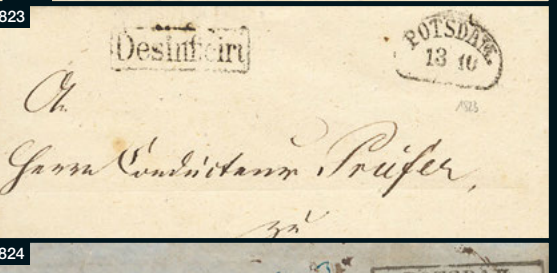 823
Desinficirt
POTSDAM.
13 10
An
Herrn Conducteur Prüfer,
zu
824